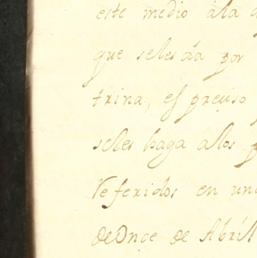 este medio ála
que seles dá por
trina, es preciso
seles haga álos
referidos en un
de Onze de Abril